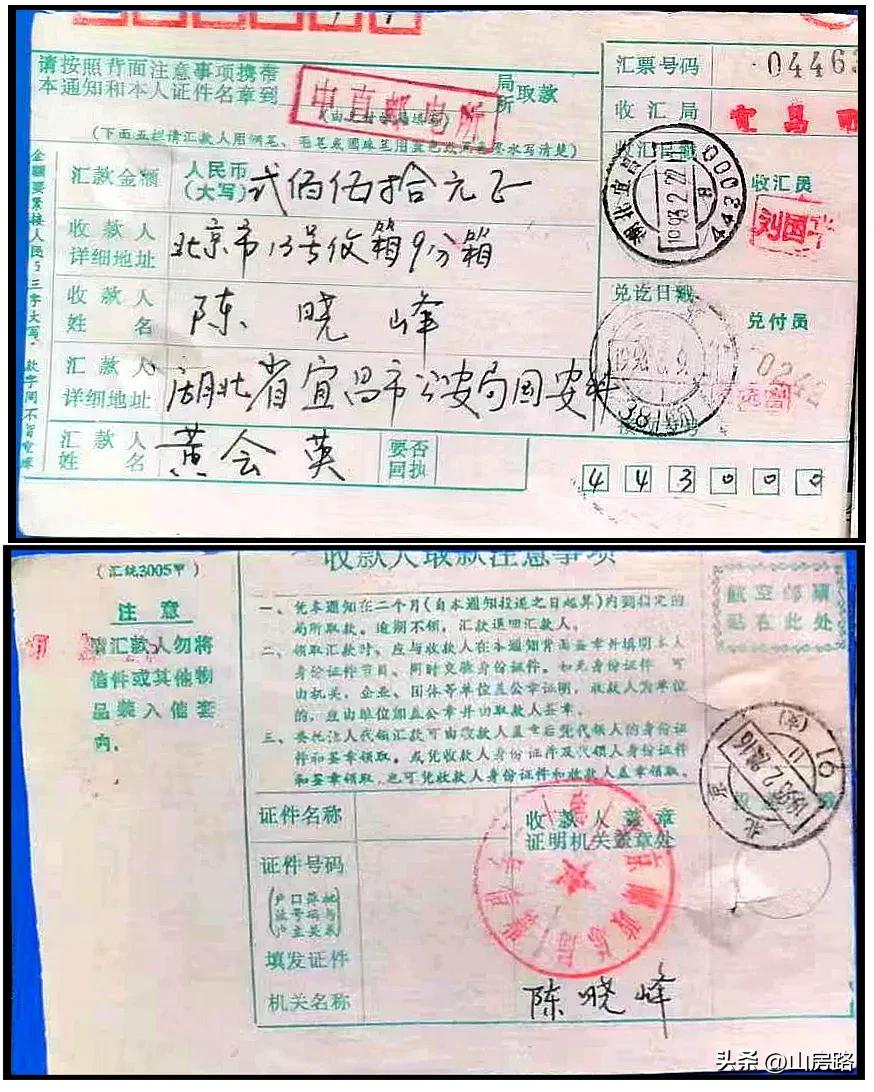 请按照背面注意事项携带
本通知和本人证件名章到
局
所
取款
中直邮电所
(下面五栏请汇款人用钢笔、毛笔或圆珠笔用蓝色或黑色墨水写清楚)
汇票号码
04463
收汇局
宜昌
汇款金额
人民币
(大写)
贰佰伍拾元正
收汇员
刘国
湖北宜昌
443000
收款人
详细地址
北京市13号信箱9分箱
收款人
姓名
陈晓峰
兑讫日戳
兑付员
0242
汇款人
详细地址
湖北省宜昌市公安局国安科
汇款人
姓名
黄会英
要否
回执
443000
收款人取款注意事项
(汇统3005甲)
注意
请汇款人勿将
信件或其他物
品装入信套
内。
一、凭本通知在二个月(自本通知投递之日起算)内到指定的
局所取款。逾期不领,汇款退回汇款人。
二、领取汇款时,应与收款人在本通知背面盖章并填明本人
身份证件节目,同时交验身份证件。如无身份证件,可
由机关、企业、团体等单位盖公章证明,收款人为单位
的,应由单位加盖公章并由取款人签章。
三、委托他人代领汇款可由收款人盖章后凭代领人的身份证
件和签章领取。或凭收款人身份证件及代领人身份证件
和签章领取,也可凭收款人身份证件和收款人盖章领取。
航空邮票
贴在此处
北京
证件名称
收款人盖章
证明机关盖章处
证件号码
填发证件
机关名称
陈晓峰
头条 @山房路